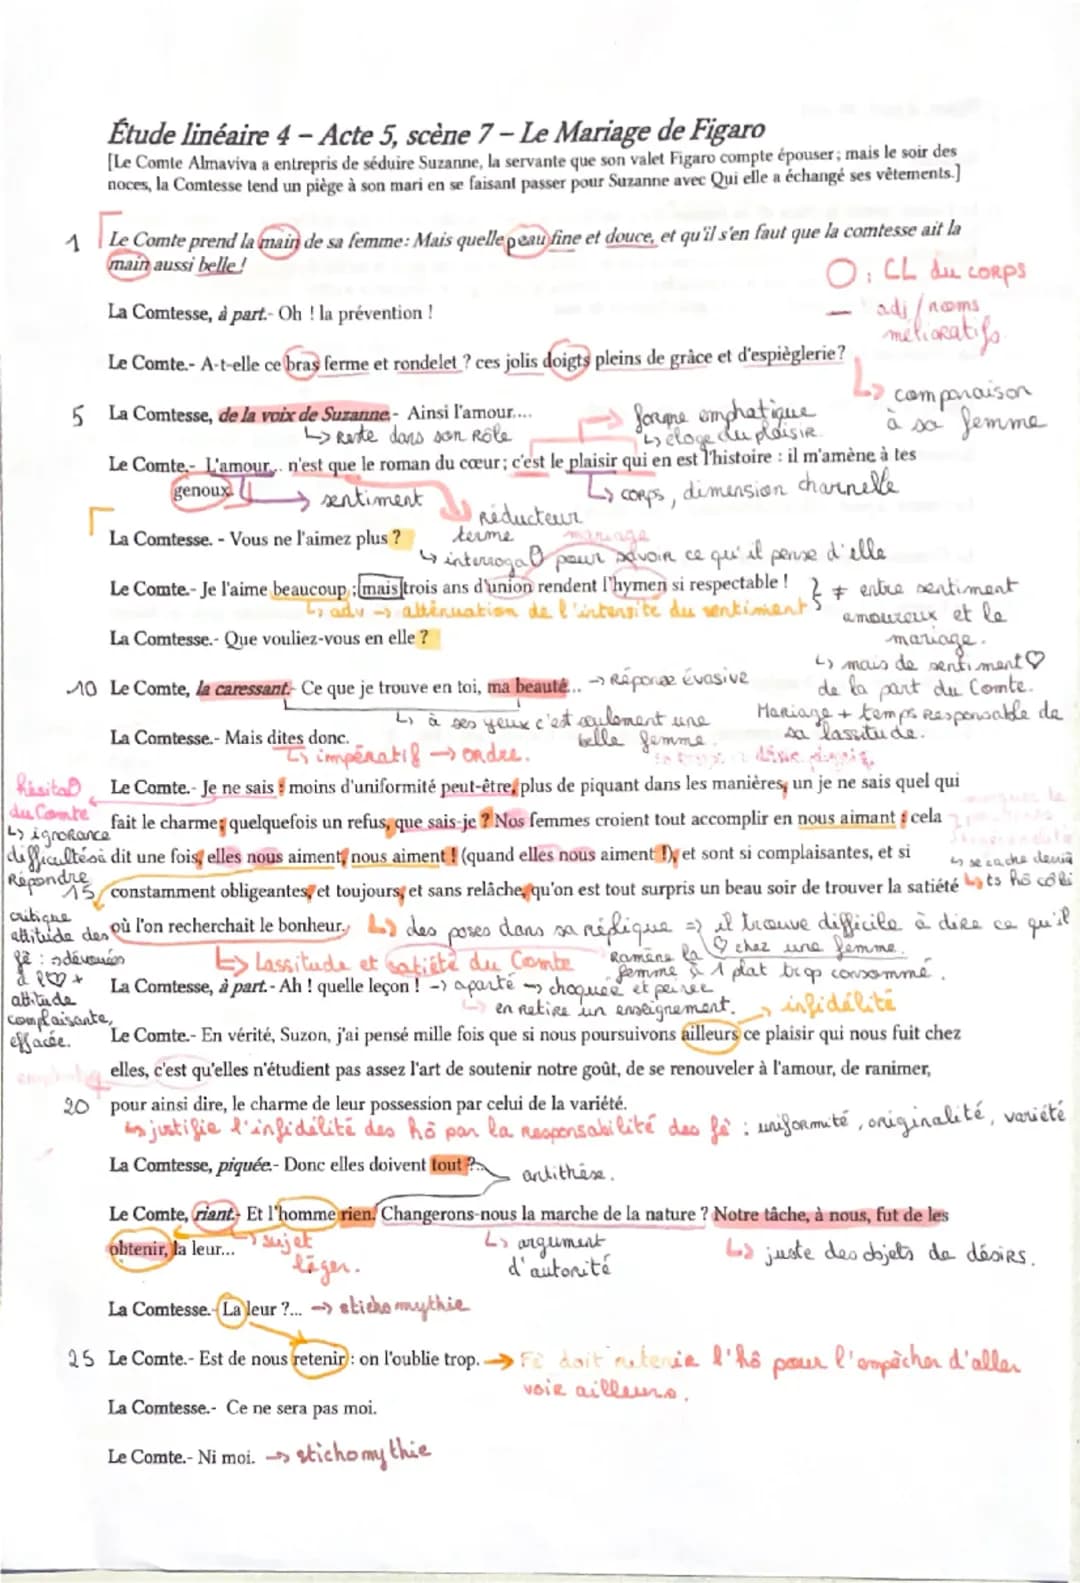 Étude linéaire 4 – Acte 5, scène 7 – Le Mariage de Figaro
[Le Comte Almaviva a entrepris de séduire Suzanne, la servante que son valet Figaro compte épouser ; mais le soir des
noces, la Comtesse tend un piège à son mari en se faisant passer pour Suzanne avec Qui elle a échangé ses vêtements.]
1 Le Comte prend la main de sa femme: Mais quelle peau fine et douce, et qu'il s'en faut que la comtesse ait la
main aussi belle !
O : CL du corps
— adj / noms
mélioratifs.
La Comtesse, à part.- Oh ! la prévention !
Le Comte.- A-t-elle ce bras ferme et rondelet ? ces jolis doigts pleins de grâce et d'espièglerie?
↳ comparaison
à sa femme
5 La Comtesse, de la voix de Suzanne.- Ainsi l'amour....
↳ Reste dans son Rôle
→ forme emphatique
↳ éloge du plaisir.
Le Comte.- L'amour... n'est que le roman du cœur; c'est le plaisir qui en est l'histoire : il m'amène à tes
genoux.
→ sentiment
↳ corps, dimension charnelle
réducteur
terme
La Comtesse. - Vous ne l'aimez plus ?
mariage
↳ interroga° pour savoir ce qu'il pense d'elle
Le Comte.- Je l'aime beaucoup ; mais trois ans d'union rendent l'hymen si respectable !
↳ adv → atténuation de l'intensité du sentiment
} ≠ entre sentiment
amoureux et le
mariage.
La Comtesse.- Que vouliez-vous en elle ?
↳ mais de sentiment ♡
de la part du Comte.
Mariage + temps Responsable de
sa lassitude.
10 Le Comte, la caressant.- Ce que je trouve en toi, ma beauté... → Réponse évasive
↳ à ses yeux c'est seulement une
belle femme.
La Comtesse.- Mais dites donc.
↳ impératif → ordre.
Le Comte.- Je ne sais : moins d'uniformité peut-être, plus de piquant dans les manières, un je ne sais quel qui
Hésita°
du Comte
↳ ignorance
difficultés à
Répondre
fait le charme; quelquefois un refus, que sais-je ? Nos femmes croient tout accomplir en nous aimant : cela
dit une fois, elles nous aiment, nous aiment ! (quand elles nous aiment !), et sont si complaisantes, et si
↳ se cache derrière
15 constamment obligeantes, et toujours, et sans relâche, qu'on est tout surpris un beau soir de trouver la satiété
où l'on recherchait le bonheur.
↳ des poses dans sa réplique => il trouve difficile à dire ce qu'il
♡ chez une femme.
critique
attitude des
fê : dévouées
attitude
complaisante,
effacée.
↳ Lassitude et satiété du Comte
Ramène la
femme à 1 plat trop consommé.
La Comtesse, à part.- Ah ! quelle leçon ! → aparté → choquée et peinée
↳ en retire un enseignement.
→ infidélité
Le Comte.- En vérité, Suzon, j'ai pensé mille fois que si nous poursuivons ailleurs ce plaisir qui nous fuit chez
elles, c'est qu'elles n'étudient pas assez l'art de soutenir notre goût, de se renouveler à l'amour, de ranimer,
20 pour ainsi dire, le charme de leur possession par celui de la variété.
↳ justifie l'infidélité des hô par la responsabilité des fê : uniformité, originalité, variété
La Comtesse, piquée.- Donc elles doivent tout ?
antithèse.
Le Comte, riant.- Et l'homme rien. Changerons-nous la marche de la nature ? Notre tâche, à nous, fut de les
obtenir, la leur...
→ sujet
léger.
↳ argument
d'autorité
↳ juste des objets de désirs.
La Comtesse.- La leur ?... → stichomythie
25 Le Comte.- Est de nous retenir : on l'oublie trop. → Fê doit retenir l'hô pour l'empêcher d'aller
voir ailleurs.
La Comtesse.- Ce ne sera pas moi.
Le Comte.- Ni moi. → stichomythie